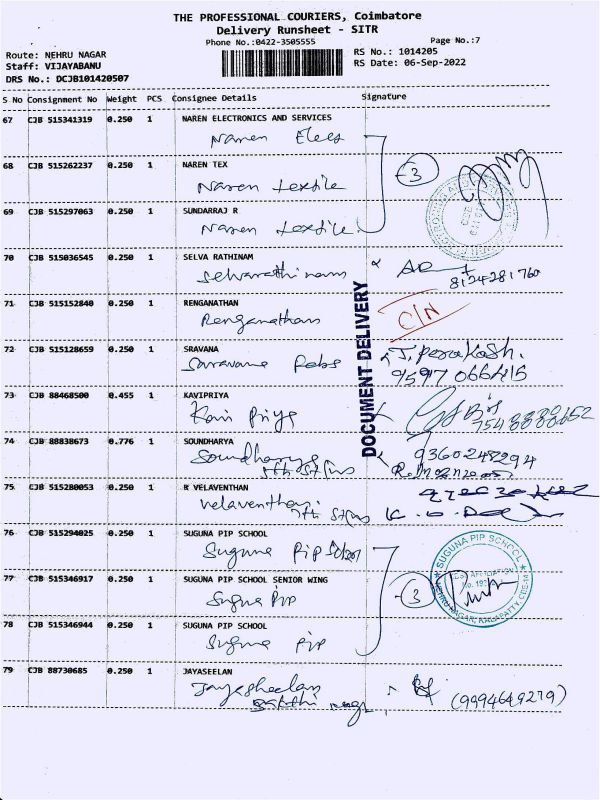 THE PROFESSIONAL COURIERS, Coimbatore
Delivery Runsheet - SITR
Phone No.:0422-3505555 Page No.:7
Route: NEHRU NAGAR RS No.: 1014205
Staff: VIJAYABANU RS Date: 06-Sep-2022
DRS No.: DCJB101420507
S No Consignment No Weight PCS Consignee Details Signature
67 CJB 515341319 0.250 1 NAREN ELECTRONICS AND SERVICES
Naren Elecs
68 CJB 515262237 0.250 1 NAREN TEX
Naren textile
3
69 CJB 515297063 0.250 1 SUNDARRAJ R
Naren textile
70 CJB 515036545 0.250 1 SELVA RATHINAM
Selvarathinam 8124281760
71 CJB 515152840 0.250 1 RENGANATHAN
Renganathan C/N
DOCUMENT DELIVERY
72 CJB 515128659 0.250 1 SRAVANA
Saravana Fabs J. Prakash.
9597066415
73 CJB 88468500 0.455 1 KAVIPRIYA
Kavi Priya
74 CJB 88838673 0.776 1 SOUNDHARYA
Soundharya
75 CJB 515280053 0.250 1 R VELAVENTHAN
Velaventhan
76 CJB 515294025 0.250 1 SUGUNA PIP SCHOOL
Suguna Pip School
SUGUNA PIP SCHOOL
77 CJB 515346917 0.250 1 SUGUNA PIP SCHOOL SENIOR WING
Suguna Pip 3
78 CJB 515346944 0.250 1 SUGUNA PIP SCHOOL
Suguna Pip
79 CJB 88730685 0.250 1 JAYASEELAN
Jayasheelan
(9994649279)